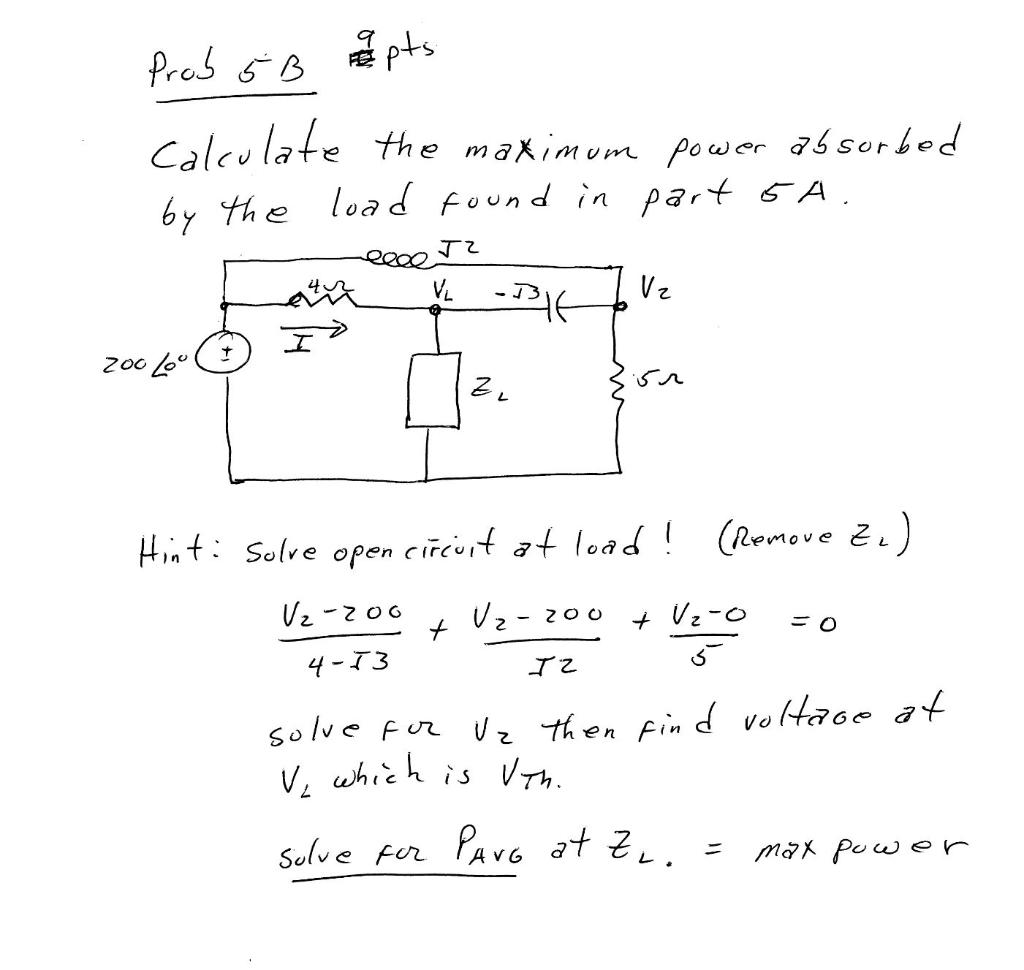 Prob 5B 9 pts
Calculate the maximum power absorbed
by the load found in part 5A.
J2
4Ω VL -J3 V2
I
200∠0° + ZL 5Ω
Hint: Solve open circuit at load! (Remove ZL)
V2-200 + V2-200 + V2-0 = 0
4-J3 J2 5
solve for V2 then find voltage at
VL which is VTh.
Solve for PAVG at ZL. = max power